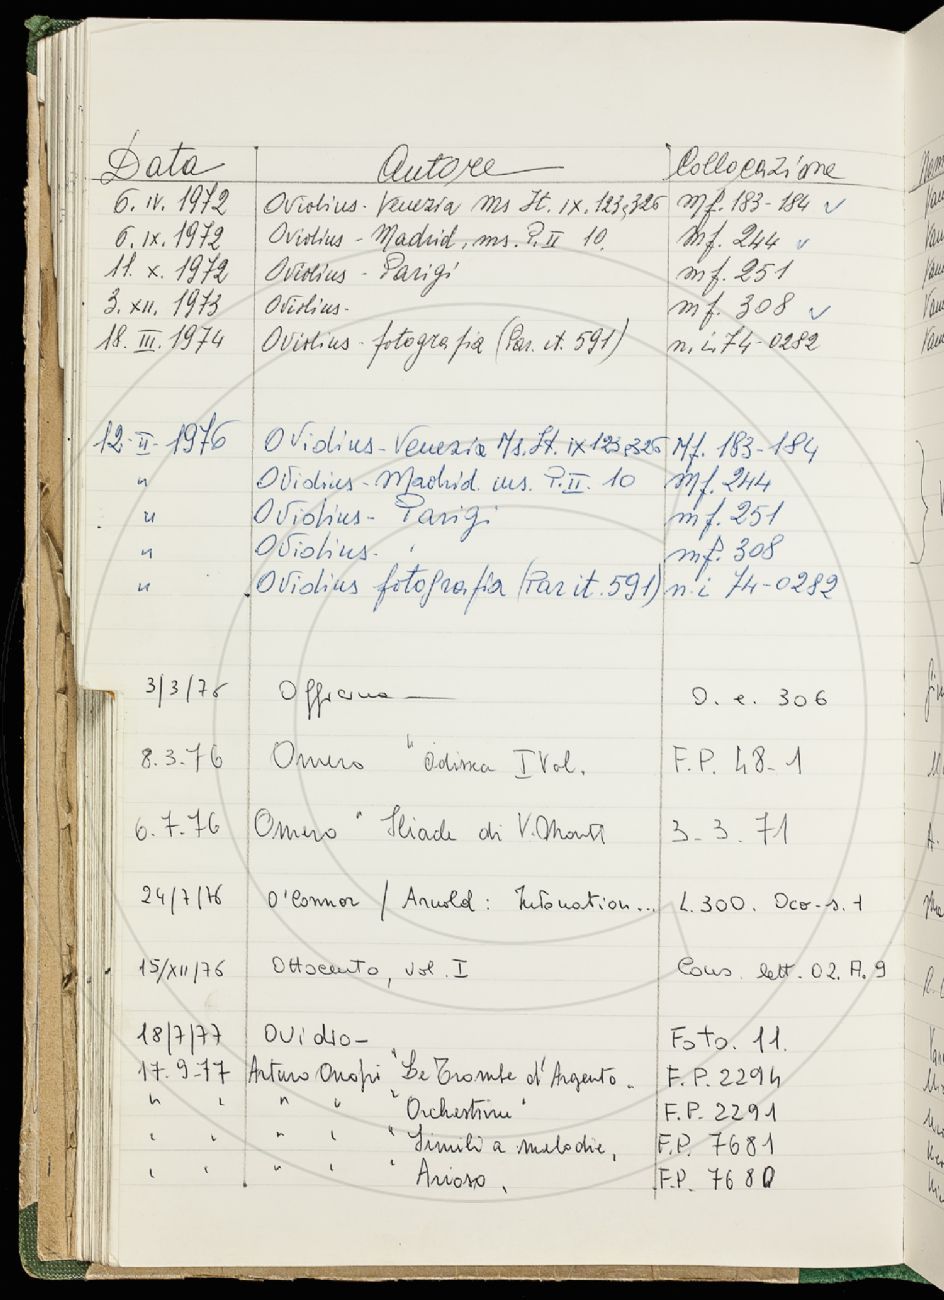 Data Autore Collocazione
6. IV. 1972 Ovidius - Venezia Ms It. IX. 123, 326 mf. 183-184 ✓
6. IX. 1972 Ovidius - Madrid, ms. P. II 10. mf. 244 ✓
11. X. 1972 Ovidius - Parigi mf. 251
3. XII. 1973 Ovidius. mf. 308 ✓
18. III. 1974 Ovidius - fotografia (Par. it. 591) n. i. 74-0282
12-II-1976 Ovidius - Venezia Ms. It. IX 123, 326 Mf. 183-184
" Ovidius - Madrid. ms. P. II. 10 mf. 244
" Ovidius - Parigi mf. 251
" Ovidius. mf. 308
" Ovidius fotografia (Par it. 591) n. i 74-0282
3/3/76 Officina — O. e. 306
8.3.76 Omero " Odissea I Vol. F.P. 48-1
6.7.76 Omero " Iliade di V. Monti 3-3.71
24/7/76 O'Connor / Arnold: Intonation... L.300. Oco-s. t
15/XII/76 Ottocento, vol. I Cons. lett. 02. A. 9
18/7/77 Ovidio - Foto. 11.
17.9.77 Arturo Onofri "Le Trombe d'Argento. F.P. 2294
" " " " "Orchestrine" F.P. 2291
" " " " "Simili a melodie, F.P. 7681
" " " " " Arioso, F.P. 7680